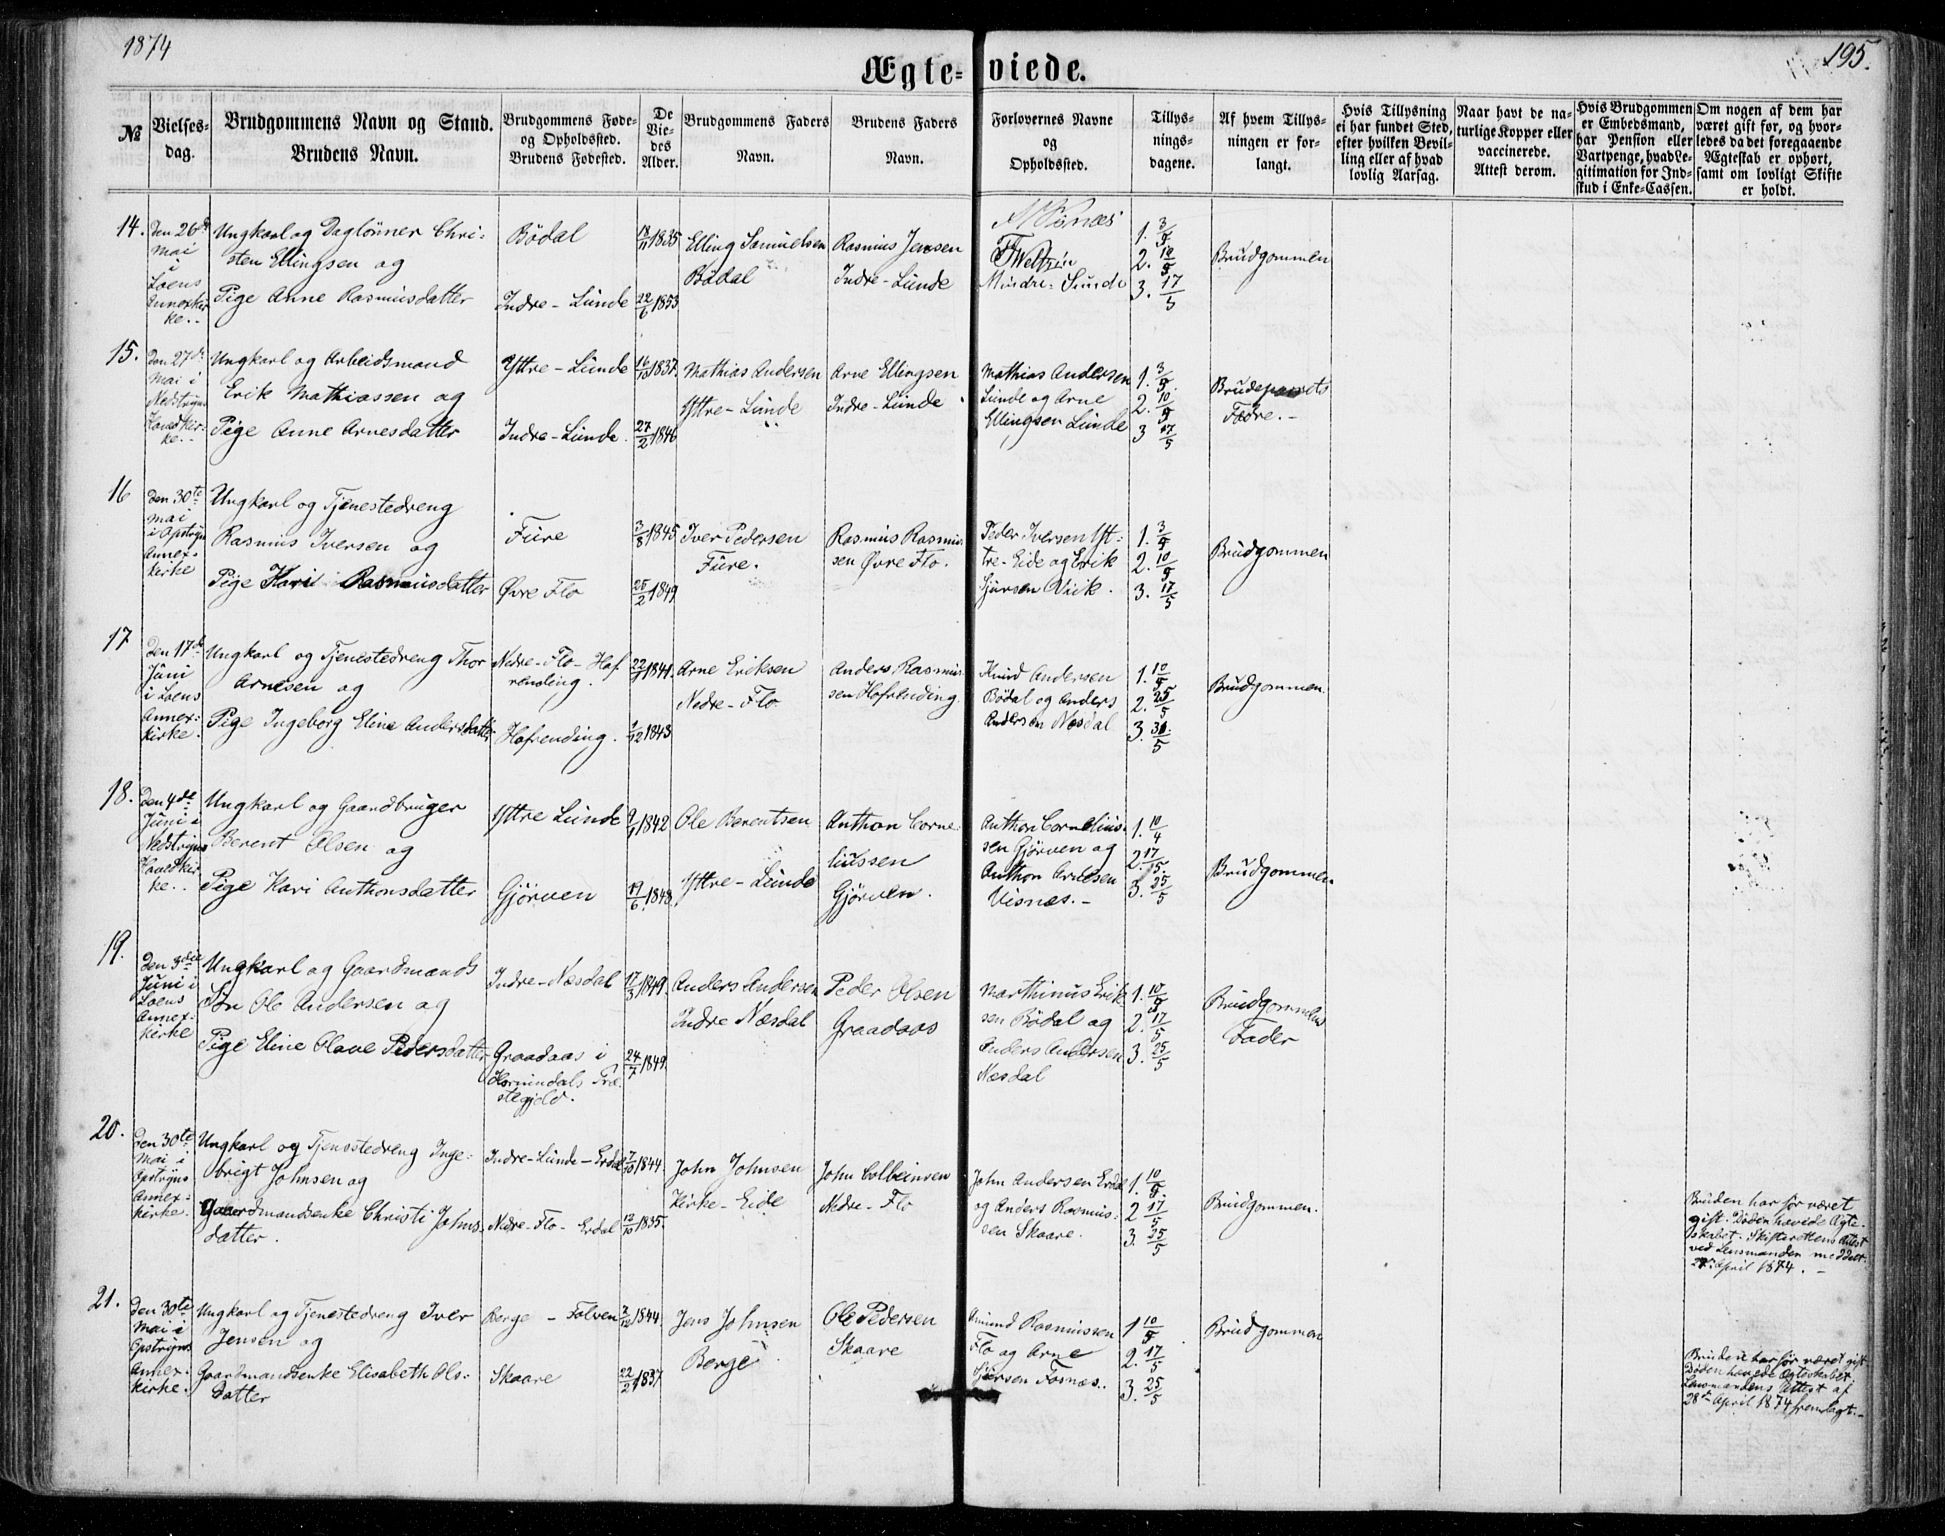 1874
195.
Ægteviede.
№
Vielsesdag.
Brudgommens Navn og Stand.
Brudens Navn.
Brudgommens Føde-
og Opholdssted.
Brudens Fødested.
De
Vie-
des
Alder.
Brudgommens Faders
Navn.
Brudens Faders
Navn.
Forlovernes Navne
og
Opholdssted.
Tillys-
nings-
dagene.
Af hvem Tillys-
ningen er for-
langt.
Hvis Tillysning
ei har fundet Sted,
efter hvilken Bevil-
ling eller af hvad
lovlig Aarsag.
Naar havt de na-
turlige Kopper eller
vaccinerede.
Attest derom.
Hvis Brudgommen
er Embedsmand,
har Pension eller
Vartpenge, hvad Le-
gitimation for Ind-
skud i Enke-Cassen.
Om nogen af dem har
været gift før, og hvor-
ledes da det foregaaende
Ægteskab er ophørt,
samt om lovligt Skifte
er holdt.
14.
Den 26de
Mai
i
Loens
Annexkir-
ke..
Ungkarl og Daglønner Chri-
sten Ellingsen og
Pige Anne Rasmusdatter
Bødal
Indre-Lunde
18/11 1835
22/6 1853
Elling Samuelsen
Bødal
Rasmus Jensen
Indre-Lunde
1. 3/5
2. 10/5
3. 17/5
Brudgommen
15.
Den 27de
Mai i
Nedstryns
Hovedkir-
ke..
Ungkarl og Arbeidsmand
Erik Mathiassen og
Pige Anne Arnesdatter
Yttre-Lunde
Indre-Lunde.
16/10 1837.
27/2 1846
Mathias Andersen
Yttre-Lunde
Arne Ellingsen
Indre-Lunde
Mathias Andersen
Lunde og Arne
Ellingsen Lunde
1. 3/5.
2. 10/5
3 17/5
Brudeparrets
Fædre.-
16
Den 30te
Mai
i Opstryn
Annex-
kirke
Ungkarl og Tjenestedreng
Rasmus Iversen og
Pige Kari Rasmusdatter
Fure
Øvre Flo
3/8 1845
25/2 1849
Iver Pedersen
Fure.
Rasmus Rasmus-
sen Øvre Flo.
Peder Iversen Yt-
tre-Eide og Erik
Sjursen Vik.
1. 3/5
2. 10/5
3. 17/5
Brudgommen
17
Den 17de
Juni
i Loens
Annex-
kirke.
Ungkarl og Tjenestedreng Thor
Arnesen og
Pige Ingeborg Eline Andersdatter
Nedre-Flo-Haf-
rending.
Hafrending.
1841.
1843
Arne Eriksen
Nedre-Flo
Anders Rasmus-
sen Hafrending
Knud Andersen
Bødal og Anders
Andersen Næsdal
1. 10/5
2. 25/5
3. 31/5
Brudgommen.
18.
Den 4de
Juni i
Nedstryns
Hovedkir-
ke..
Ungkarl og Gaardbruger
Berent Olsen og
Pige Kari Anthonsdatter
Yttre Lunde
Gjørven
1842
19/6 1848.
Ole Berentsen
Yttre-Lunde
Anthon Corne-
liussen
Gjørven.
Anthon Cornelius-
sen Gjørven og
Anthon Arnesen
Visnæs.-
1. 10/4
2 17/5.
3. 25/5
Brudgommen
19.
Den 3die
Juni i
Loens
Annex-
kirke
Ungkarl og Gaardmands
Søn Ole Andersen og
Pige Eline Olave Pedersdatter
Indre-Næsdal
Graadaas i
Hornindals Præ-
stegjeld.
17/3 1849.
24/7 1849.
Anders Andersen
Indre Næsdal
Peder Olsen
Graadaas
Marthinus Erik-
sen Bødal og
Anders Andersen
Næsdal
1. 10/5
2. 17/5
3. 25/5
Brudgommens
Fader
20.
Den 30te
Mai i
Opstryns
Annex-
kirke.
Ungkarl og Tjenestedreng Inge-
brigt Johnsen og
Gaardmandsenke Christi Johns-
datter.
Indre-Lunde-Erdal
Nedre-Flo-Erdal
7/10 1844.
12/10 1835.
John Johnsen
Kirke-Eide
John Colbeinsen
Nedre-Flo
John Andersen Erdal
og Anders Rasmus-
sen Skaare.
1. 10/5.
2 17/5
3. 25/5
Brudgommen.
Bruden har før været
gift. Døden hævede Ægte-
skabet. Skifterettens Attest
ved Lensmanden meddelt
April 1874.-
21.
Den 30te
Mai i
Opstryns
Annex-
kirke.
Ungkarl og Tjenestedreng Iver
Jensen og
Gaardmandsenke Elisabeth Ols-
datter
Berge - Folven
Skaare
3/12 1844
22/2 1837
Jens Johnsen
Berge
Ole Pedersen
Skaare
Amund Rasmussen
Flo og Arne
Sjursen Fosnæs..
1 10/5
2. 17/5
3. 25/5
Brudgommen
Bruden har før været gift
Døden hævede Ægteskabet.
Lensmandens Attest af
28de April 1874 fremlagt.-